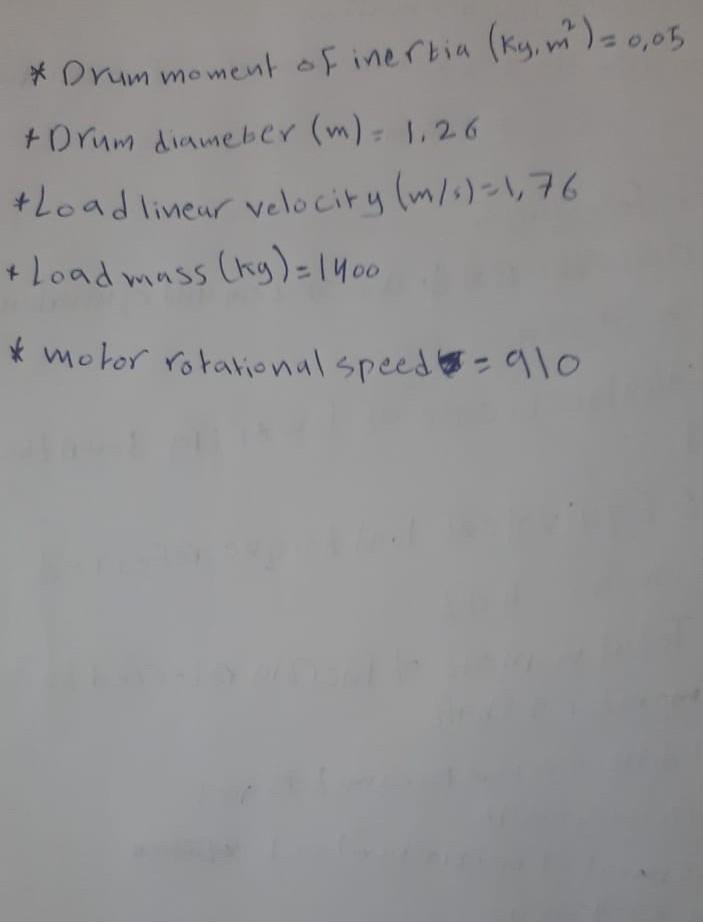 * Drum moment of inertia (kg.m²) = 0,05
* Drum diameter (m) = 1.26
* Load linear velocity (m/s) = 1,76
* Load mass (kg) = 1400
* motor rotational speed = 910